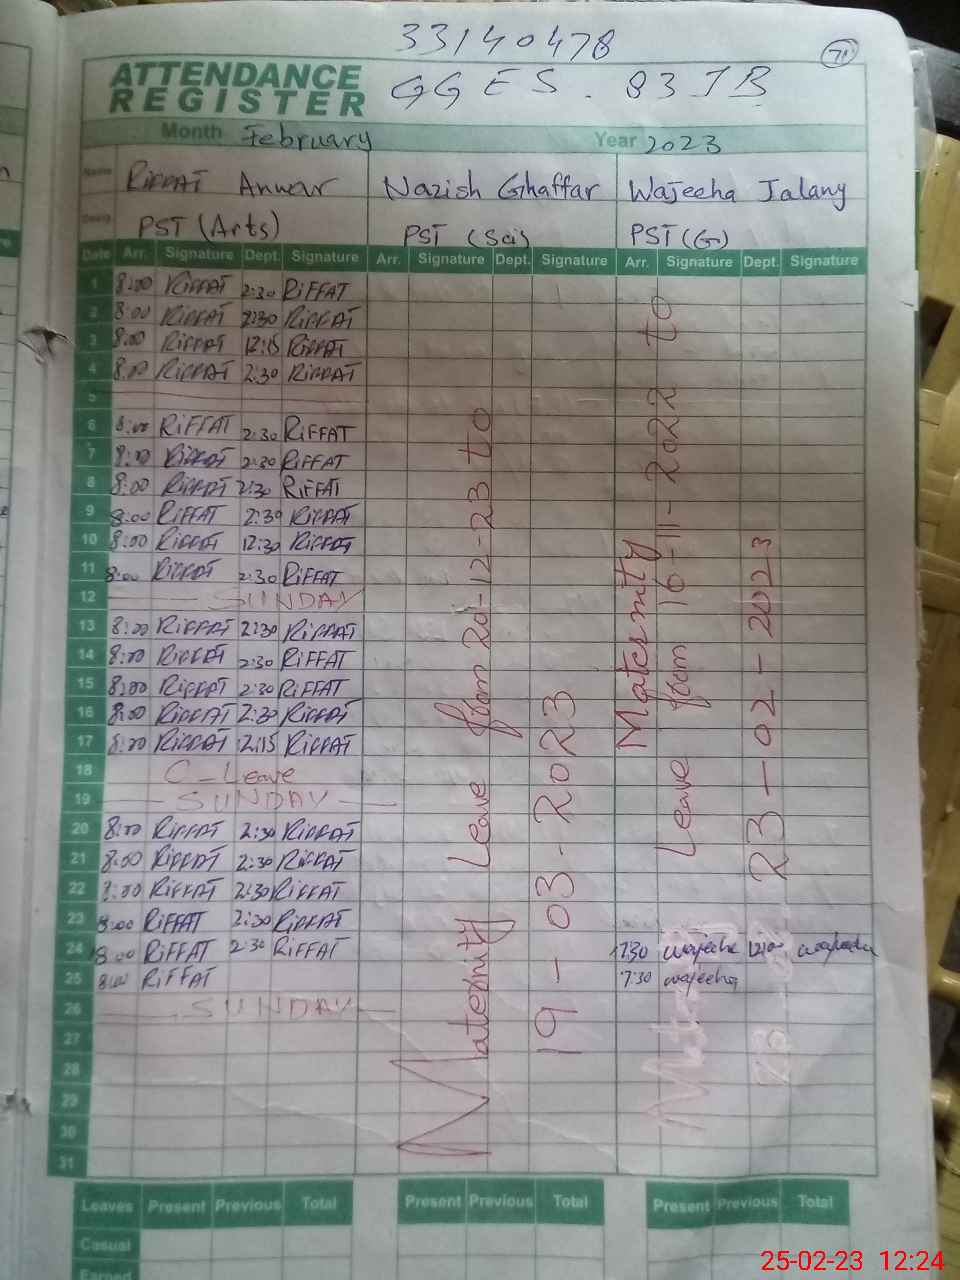 33140478
71
ATTENDANCE
REGISTER
GGES. 83JB
Month February Year 2023
Name RiFFAT Anwar Nazish Ghaffar Wajeeha Jalany
Desig. PST (Arts) PST (Sci) PST (G)
Date Arr. Signature Dept. Signature Arr. Signature Dept. Signature Arr. Signature Dept. Signature
1 8:00 RiFFAT 2:30 RiFFAT
2 8:00 RiFFAT 2:30 RiFFAT
3 8:00 RiFFAT 12:15 RiFFAT
4 8:00 RiFFAT 2:30 RiFFAT
5
6 8:00 RiFFAT 2:30 RiFFAT
7 8:00 RiFFAT 2:30 RiFFAT
8 8:00 RiFFAT 2:30 RiFFAT
9 8:00 RiFFAT 2:30 RiFFAT
10 8:00 RiFFAT 12:30 RiFFAT
11 8:00 RiFFAT 2:30 RiFFAT
12 SUNDAY
13 8:00 RiFFAT 2:30 RiFFAT
14 8:00 RiFFAT 2:30 RiFFAT
15 8:00 RiFFAT 2:30 RiFFAT
16 8:00 RiFFAT 2:30 RiFFAT
17 8:00 RiFFAT 12:15 RiFFAT
18 C-Leave
19 SUNDAY
20 8:00 RiFFAT 2:30 RiFFAT
21 8:00 RiFFAT 2:30 RiFFAT
22 8:00 RiFFAT 2:30 RiFFAT
23 8:00 RiFFAT 2:30 RiFFAT
24 8:00 RiFFAT 2:30 RiFFAT 7:30 wajeeha wajeeha
25 8:00 RiFFAT 7:30 wajeeha
26 SUNDAY
27
28
29
30
31
Maternity Leave from 20-12-23 to
19-03-2023
Maternity
Leave from 16-11-2022 to
23-02-2023
Leaves Present Previous Total Present Previous Total Present Previous Total
Casual
Earned
25-02-23 12:24